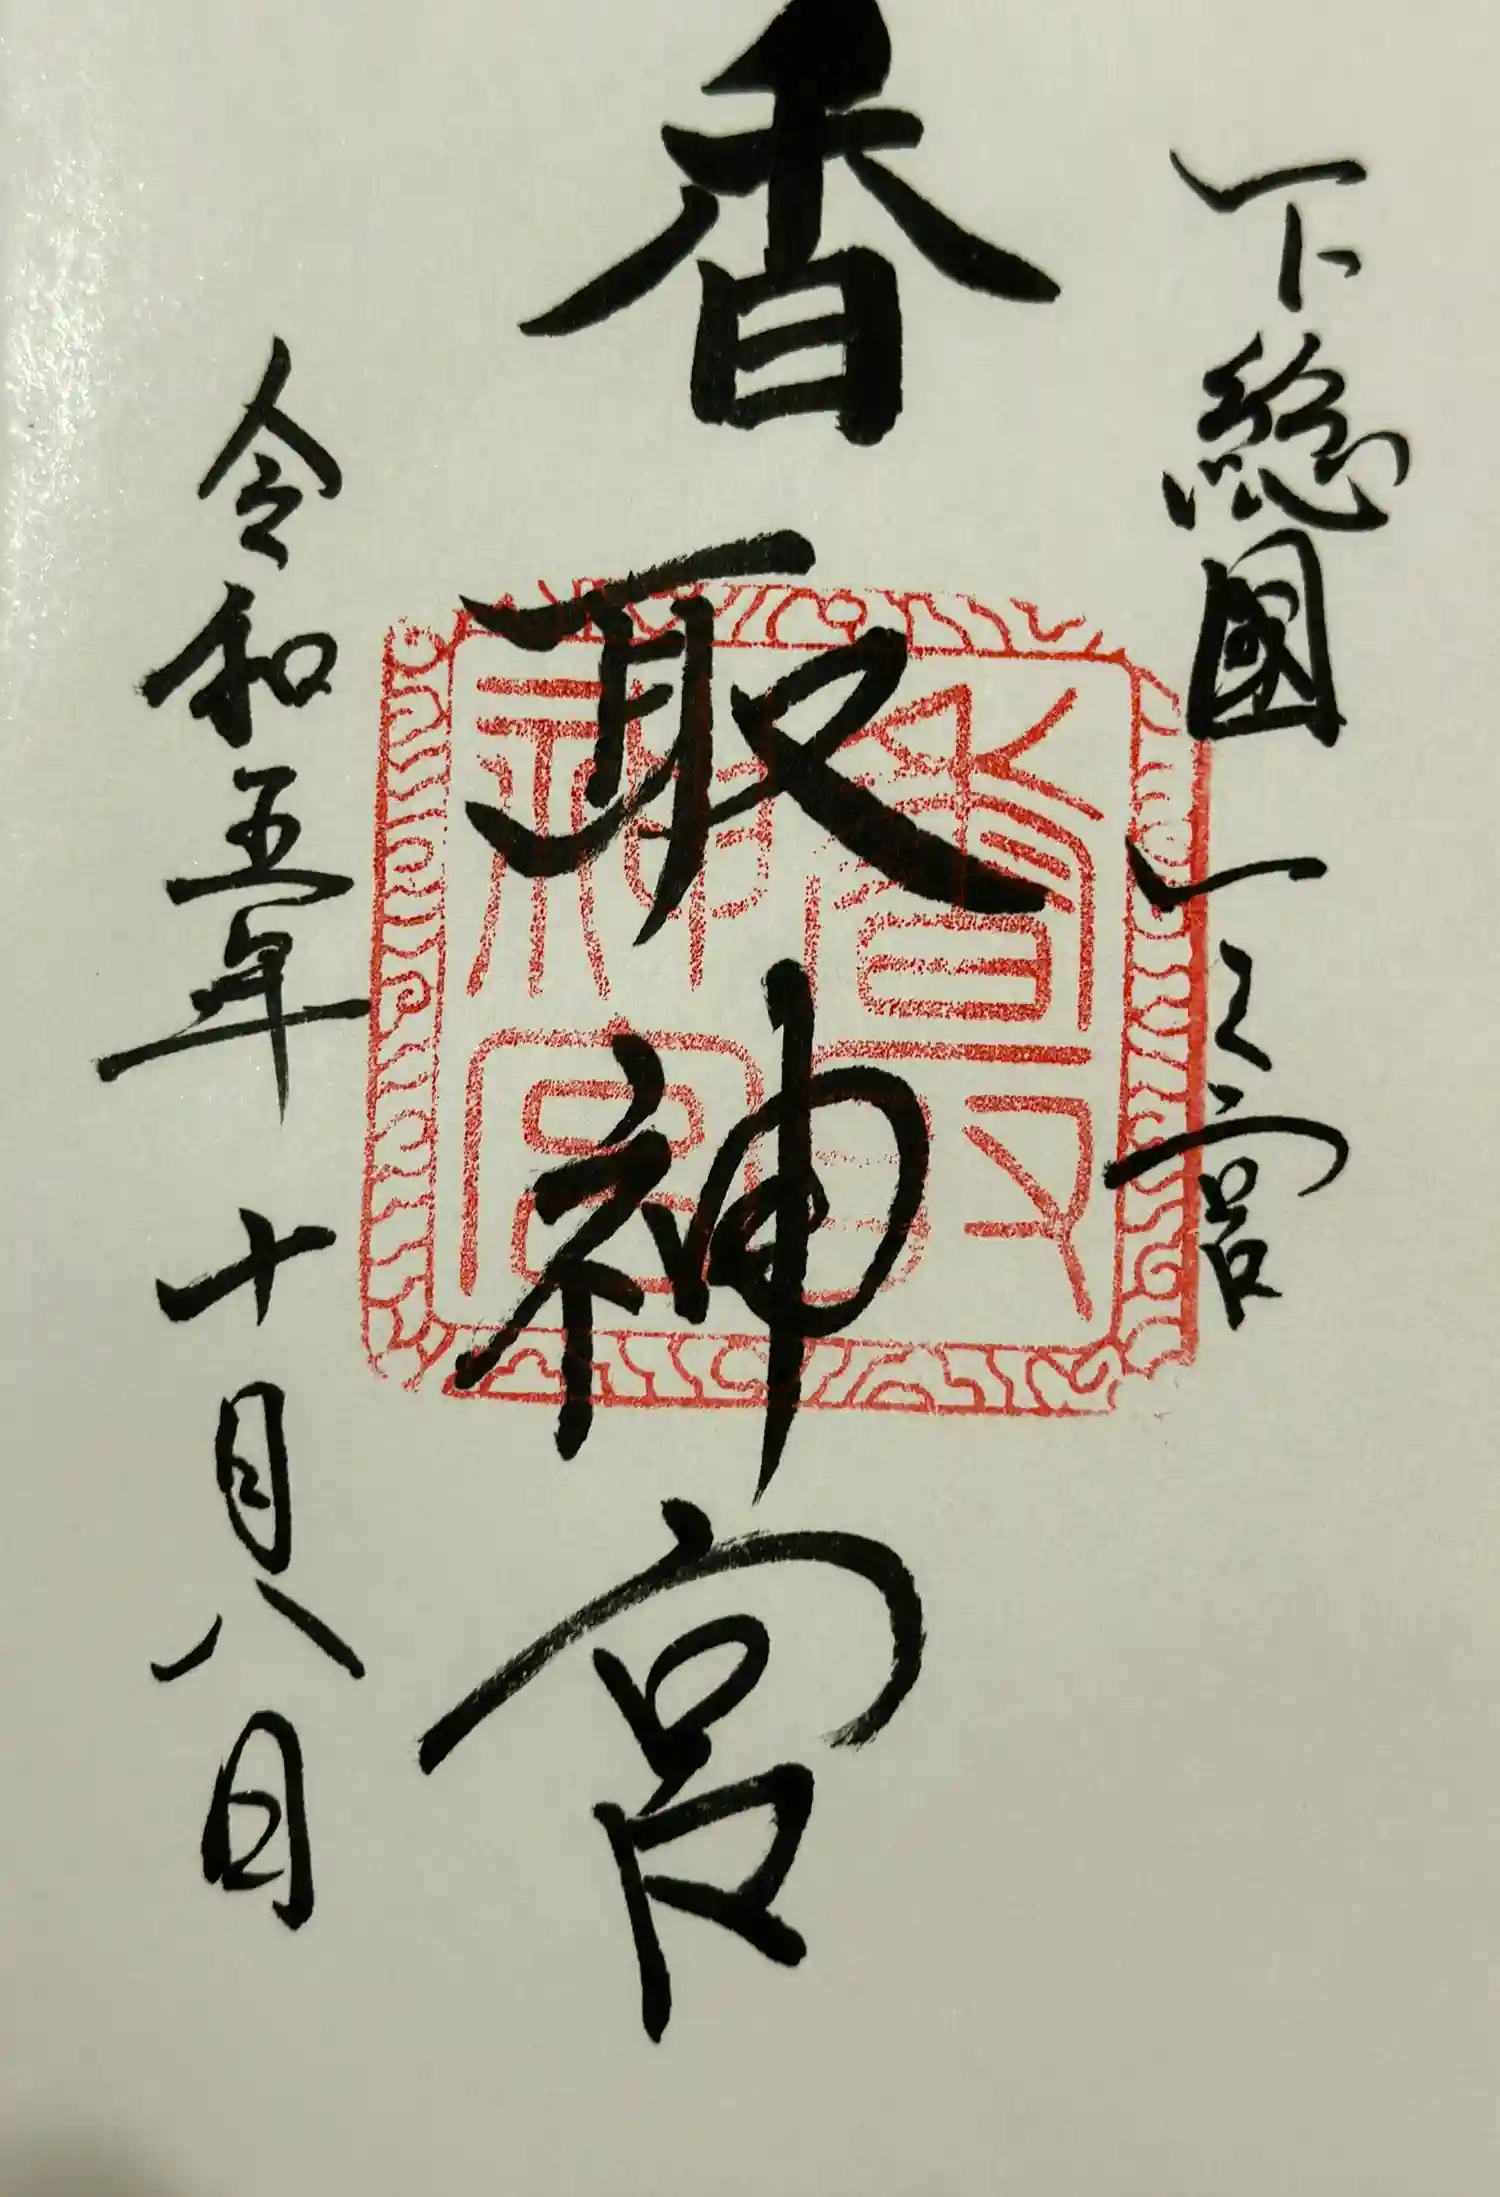 下總國一之宮
香取神宮
令和五年十月八日
香取神宮